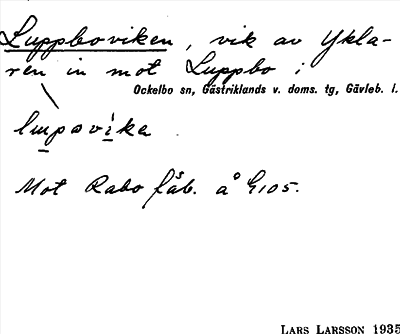 Luppboviken, vik av Ykla-
ren in mot Luppbo i
Ockelbo sn, Gästriklands v. doms. tg, Gävleb. l.
lupovika
Mot Rabo fäb. å G105.
LARS LARSSON 1935